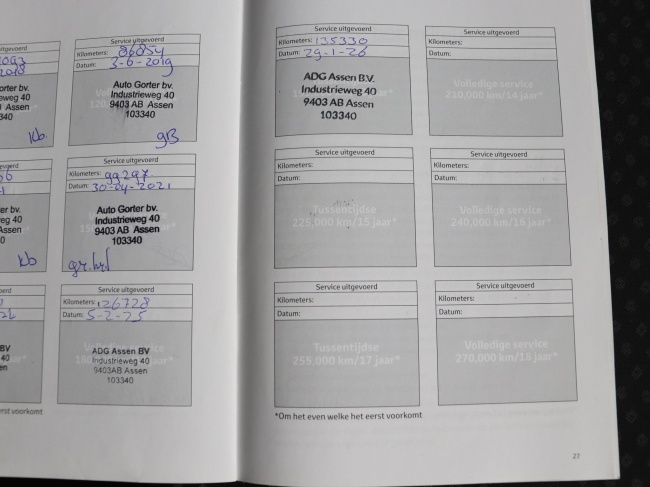 Service uitgevoerd
Kilometers: 86854
Datum: 3-6-2019
Auto Gorter bv.
Industrieweg 40
9403 AB Assen
103340
gB
Service uitgevoerd
Kilometers: 99297
Datum: 30-04-2021
Auto Gorter bv.
Industrieweg 40
9403 AB Assen
103340
Service uitgevoerd
Kilometers: 126728
Datum: 5-2-25
ADG Assen BV
Industrieweg 40
9403AB Assen
103340
Kb
Kb
Service uitgevoerd
Kilometers: 135330
Datum: 29-1-26
ADG Assen B.V.
Industrieweg 40
9403 AB Assen
103340
Service uitgevoerd
Kilometers:
Datum:
Volledige service
210,000 km/14 jaar*
Service uitgevoerd
Kilometers:
Datum:
Tussentijdse
225,000 km/15 jaar*
Service uitgevoerd
Kilometers:
Datum:
Volledige service
240,000 km/16 jaar*
Service uitgevoerd
Kilometers:
Datum:
Tussentijdse
255,000 km/17 jaar*
Service uitgevoerd
Kilometers:
Datum:
Volledige service
270,000 km/18 jaar*
*Om het even welke het eerst voorkomt
27